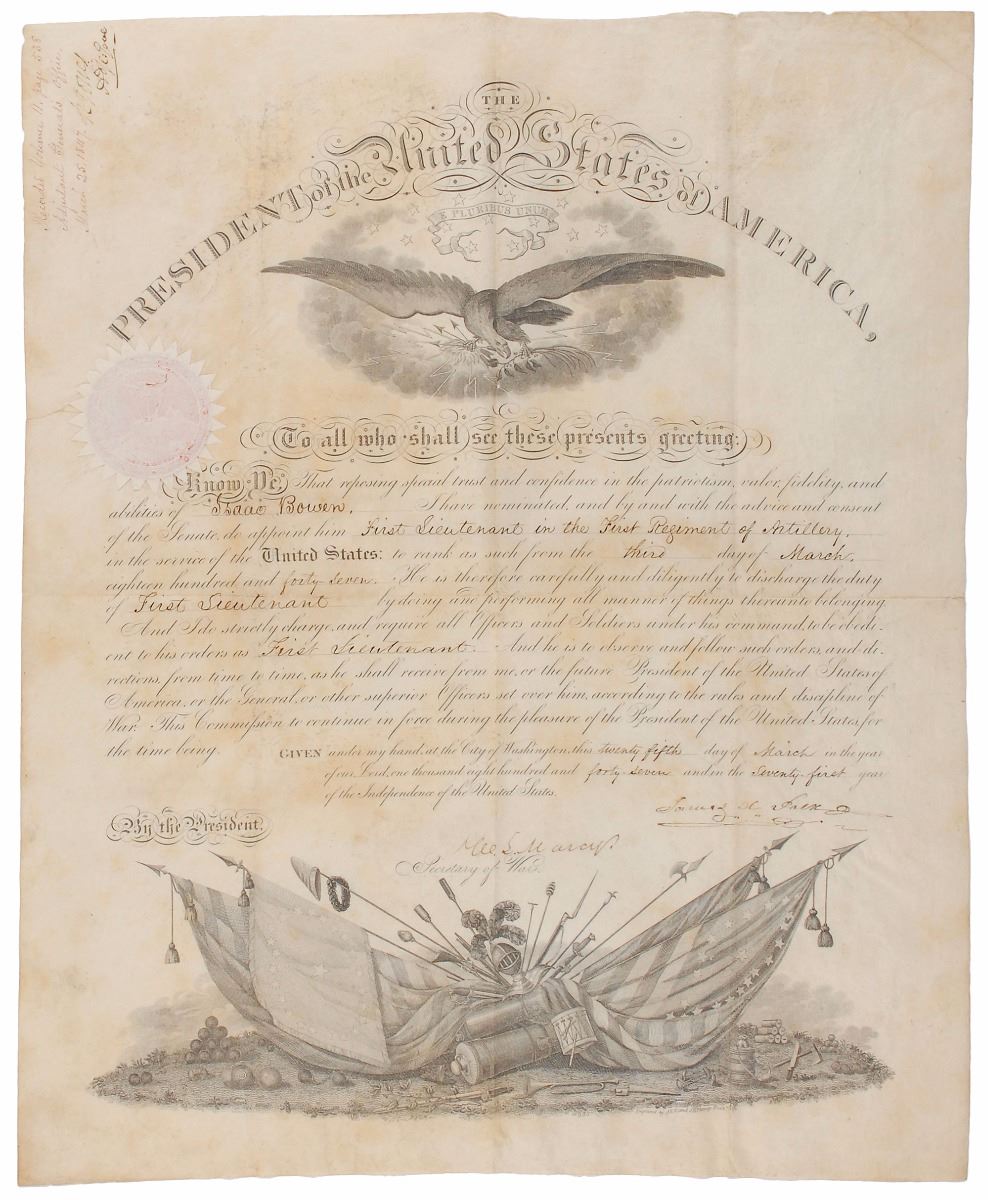 Recorded Volume 11. Page 535
Adjutant General's Office,
March 25. 1847.
THE
PRESIDENT of the United States of AMERICA,
E PLURIBUS UNUM
To all who shall see these presents greeting:
Know Ye, That reposing special trust and confidence in the patriotism, valor, fidelity, and
abilities of Isaac Bowen, I have nominated, and by and with the advice and consent
of the Senate, do appoint him First Lieutenant in the First Regiment of Artillery,
in the service of the United States: to rank as such from the third day of March,
eighteen hundred and forty seven. He is therefore carefully and diligently to discharge the duty
of First Lieutenant by doing and performing all manner of things thereunto belonging.
And I do strictly charge, and require all Officers and Soldiers under his command, to be obedi-
ent to his orders as First Lieutenant. And he is to observe and follow such orders, and di-
rections, from time to time, as he shall receive from me, or the future President of the United States of
America, or the General, or other superior Officers set over him, according to the rules and discipline of
War. This Commission to continue in force during the pleasure of the President of the United States, for
the time being.
GIVEN under my hand, at the City of Washington, this twenty fifth day of March in the year
of our Lord, one thousand eight hundred and forty seven and in the Seventy first year
of the Independence of the United States.
James K. Polk
By the President,
W. L. Marcy
Secretary of War.